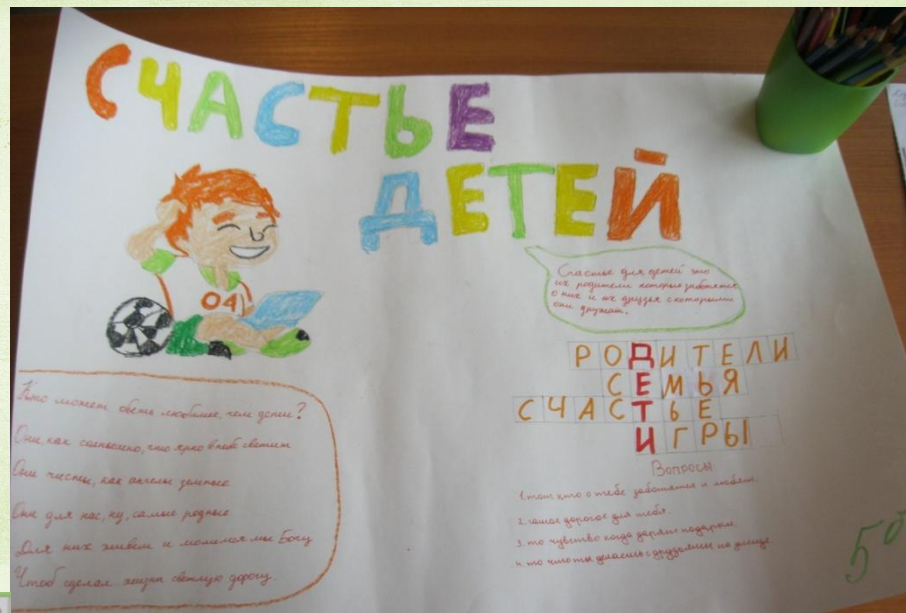 СЧАСТЬЕ
ДЕТЕЙ
04
Счастье для детей это
их родители которые заботятся
о них и их друзья с которыми
они дружат.
РОДИТЕЛИ
СЕМЬЯ
СЧАСТЬЕ
ИГРЫ
Вопросы
1. тот кто о тебе заботятся и любят.
2. самое дорогое для тебя.
3. то чувство когда дарят подарки.
4. то что ты делаешь с друзьями на улице.
Кто может быть любимее, чем дети?
Они, как солнышко, что ярко в небе светит
Они чисты, как ангелы земные
Они для нас, ну, самые родные
Для них живём и молимся мы Богу
Чтоб сделал жизни светлую дорогу.